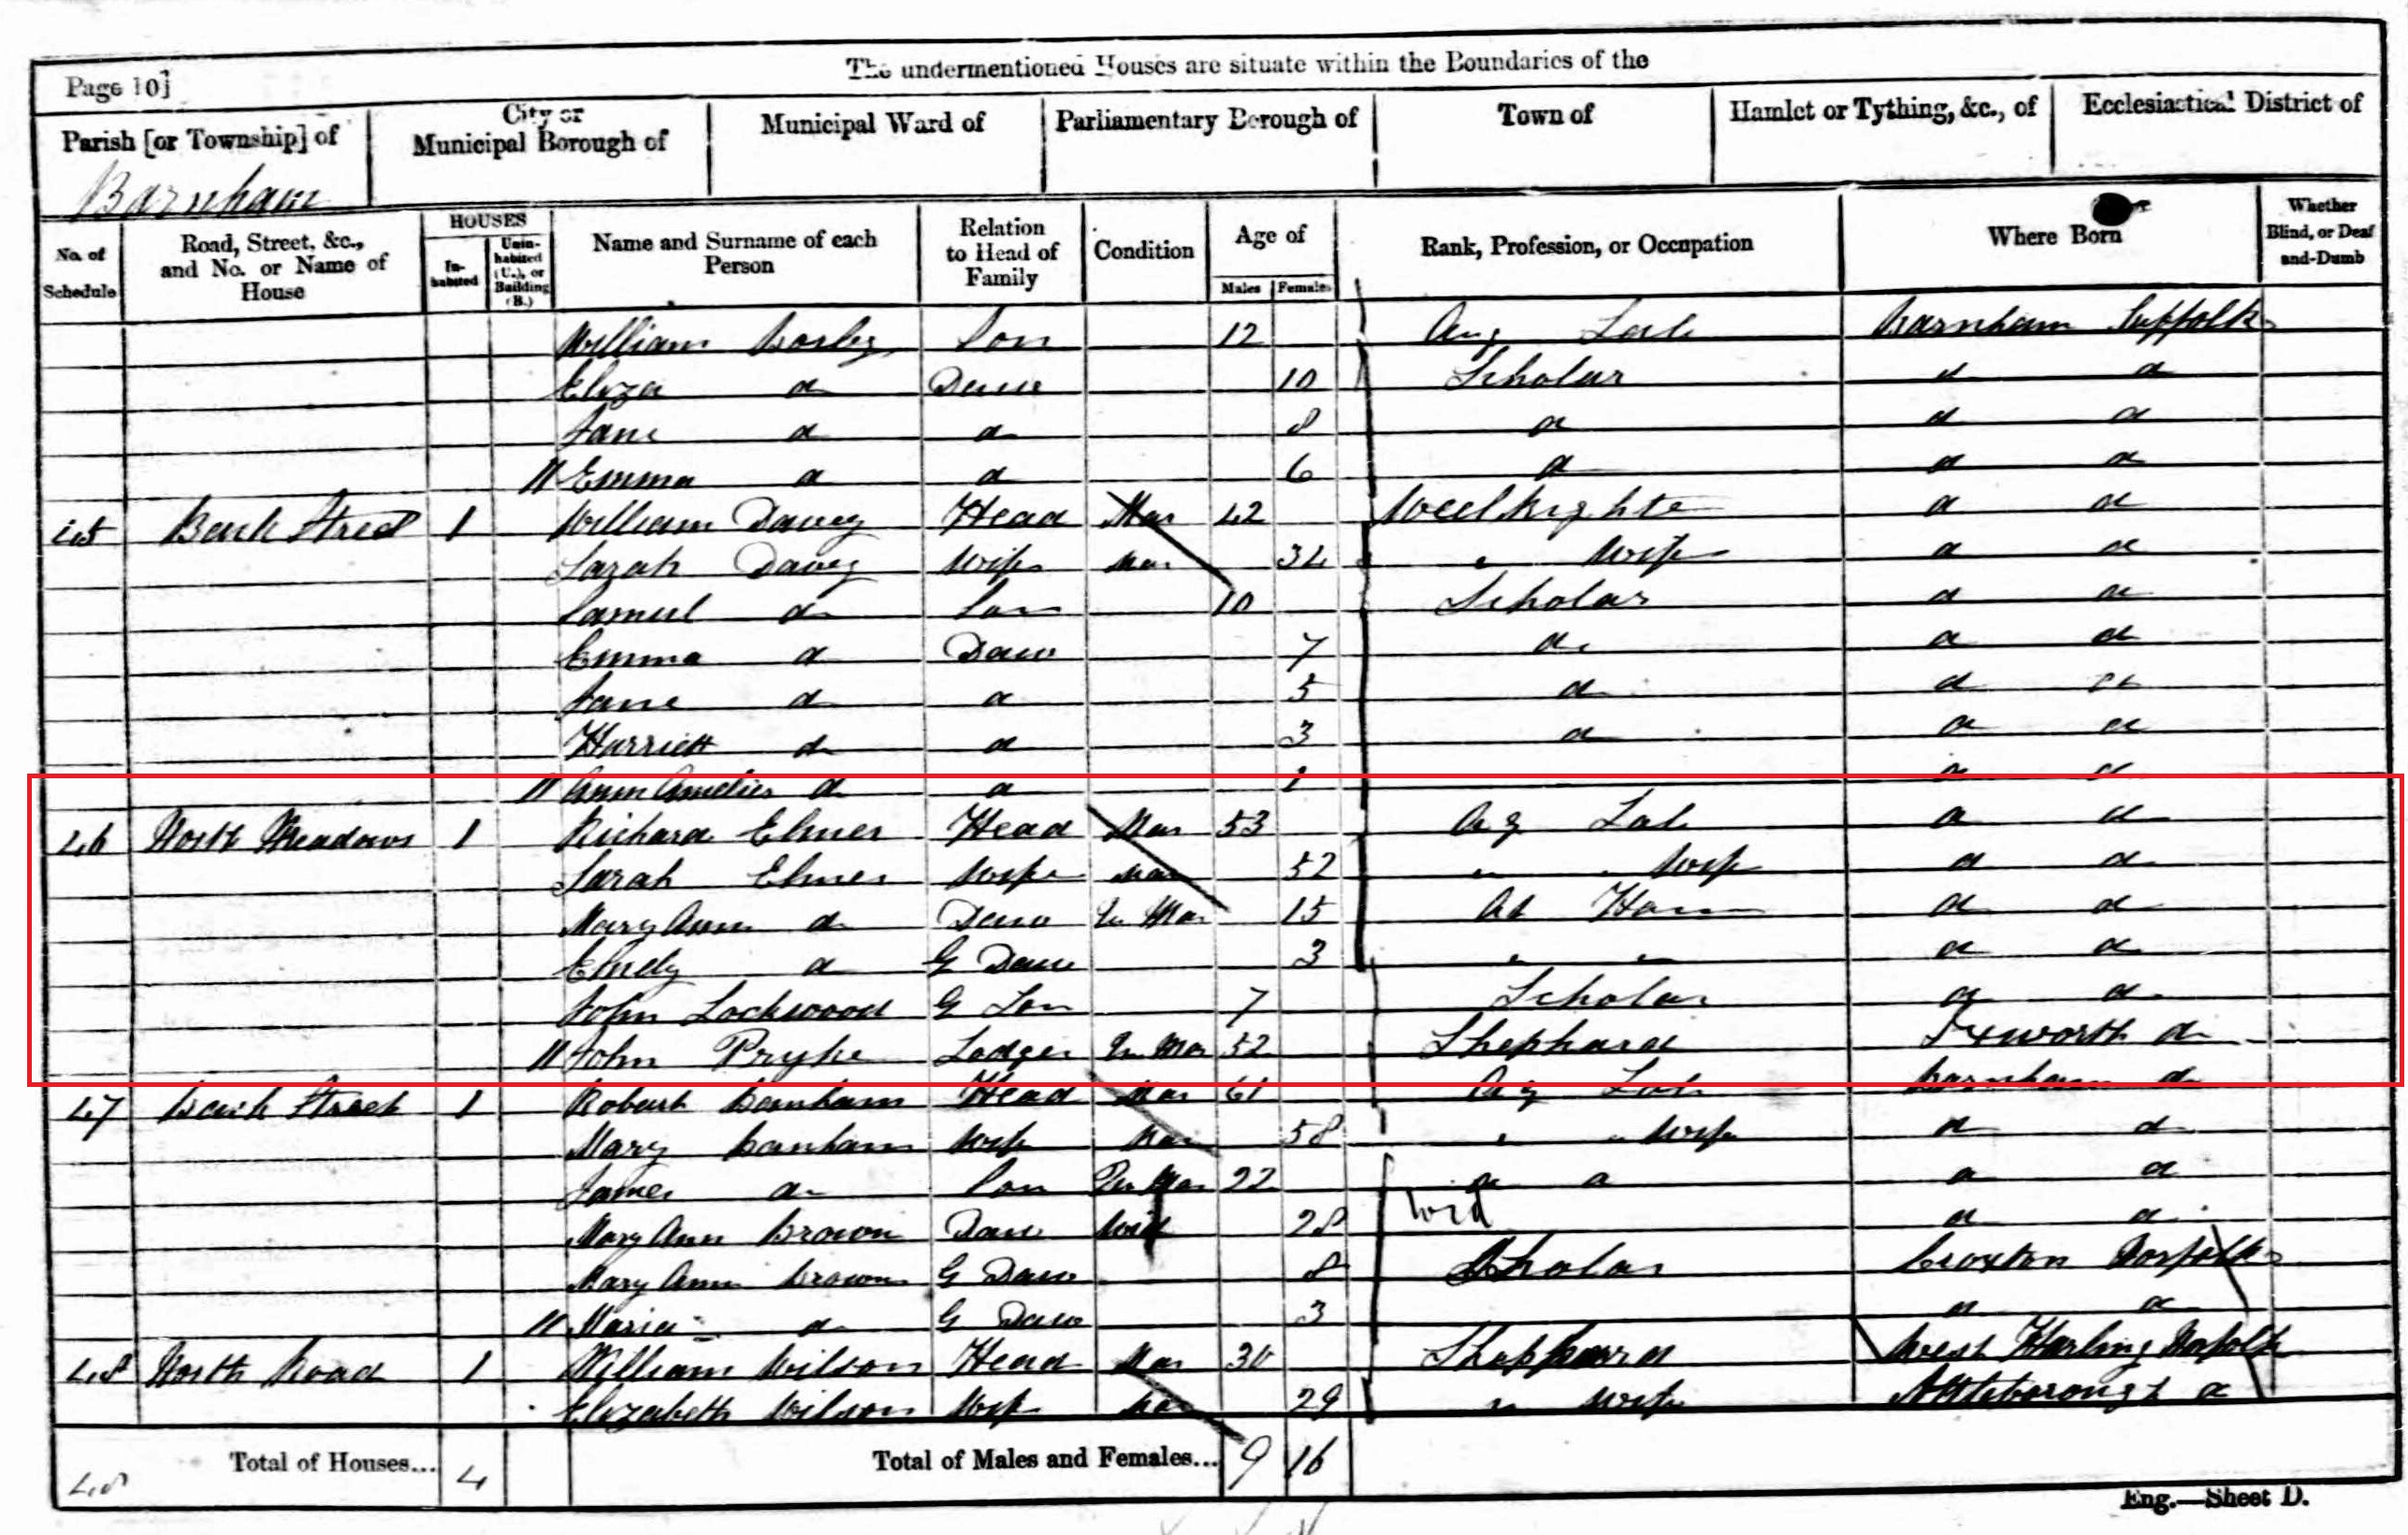 The undermentioned Houses are situate within the Boundaries of the
Page 10]
Parish [or Township] of City or Municipal Borough of Municipal Ward of Parliamentary Borough of Town of Hamlet or Tything, &c., of Ecclesiastical District of
Barnham
No. of Schedule Road, Street, &c., and No. or Name of House HOUSES In-habited Unin-habited (U.), or Building (B.) Name and Surname of each Person Relation to Head of Family Condition Age of Males Females Rank, Profession, or Occupation Where Born Whether Blind, or Deaf-and-Dumb
William Son 12 Ag Lab Barnham Suffolk
Eliza do Daur 10 Scholar do do
Jane do do 8 do do do
Emma do do 6 do do do
45 Back Street 1 William Davey Head Mar 42 Weelrighte do do
Sarah Davey Wife Mar 34 " Wife do do
Samuel do Son 10 Scholar do do
Emma do Daur 7 do do do
Jane do do 5 do do do
Harriett do do 3 do do do
Ann Amelier do do 1 do do
46 North Meadows 1 Richard Elmer Head Mar 53 Ag Lab do do
Sarah Elmer Wife Mar 52 " " Wife do do
Mary Ann do Daur Un Mar 15 At Hom do do
Emely do G Daur 3 " " do do
John Lockwood G Son 7 Scholar do do
John Pryke Lodger Un Mar 52 Shephard Ixworth do
47 Back Street 1 Robert Banham Head Mar 61 Ag Lab Barnham do
Mary Banham Wife Mar 58 " " Wife do do
James do Son Un Mar 22 do do do do
Mary Ann Brown Daur Wid 28 Wid do do
Mary Ann Brown G Daur 8 Scholar Croxton Norfolk
Maria do G Daur 3 do do
48 North Road 1 William Wilson Head Mar 30 Shephard West Harling Norfolk
Elizabeth Wilson Wife Mar 29 " Wife Attleborough do
48 Total of Houses... 4 Total of Males and Females... 9 16
Eng.—Sheet D.